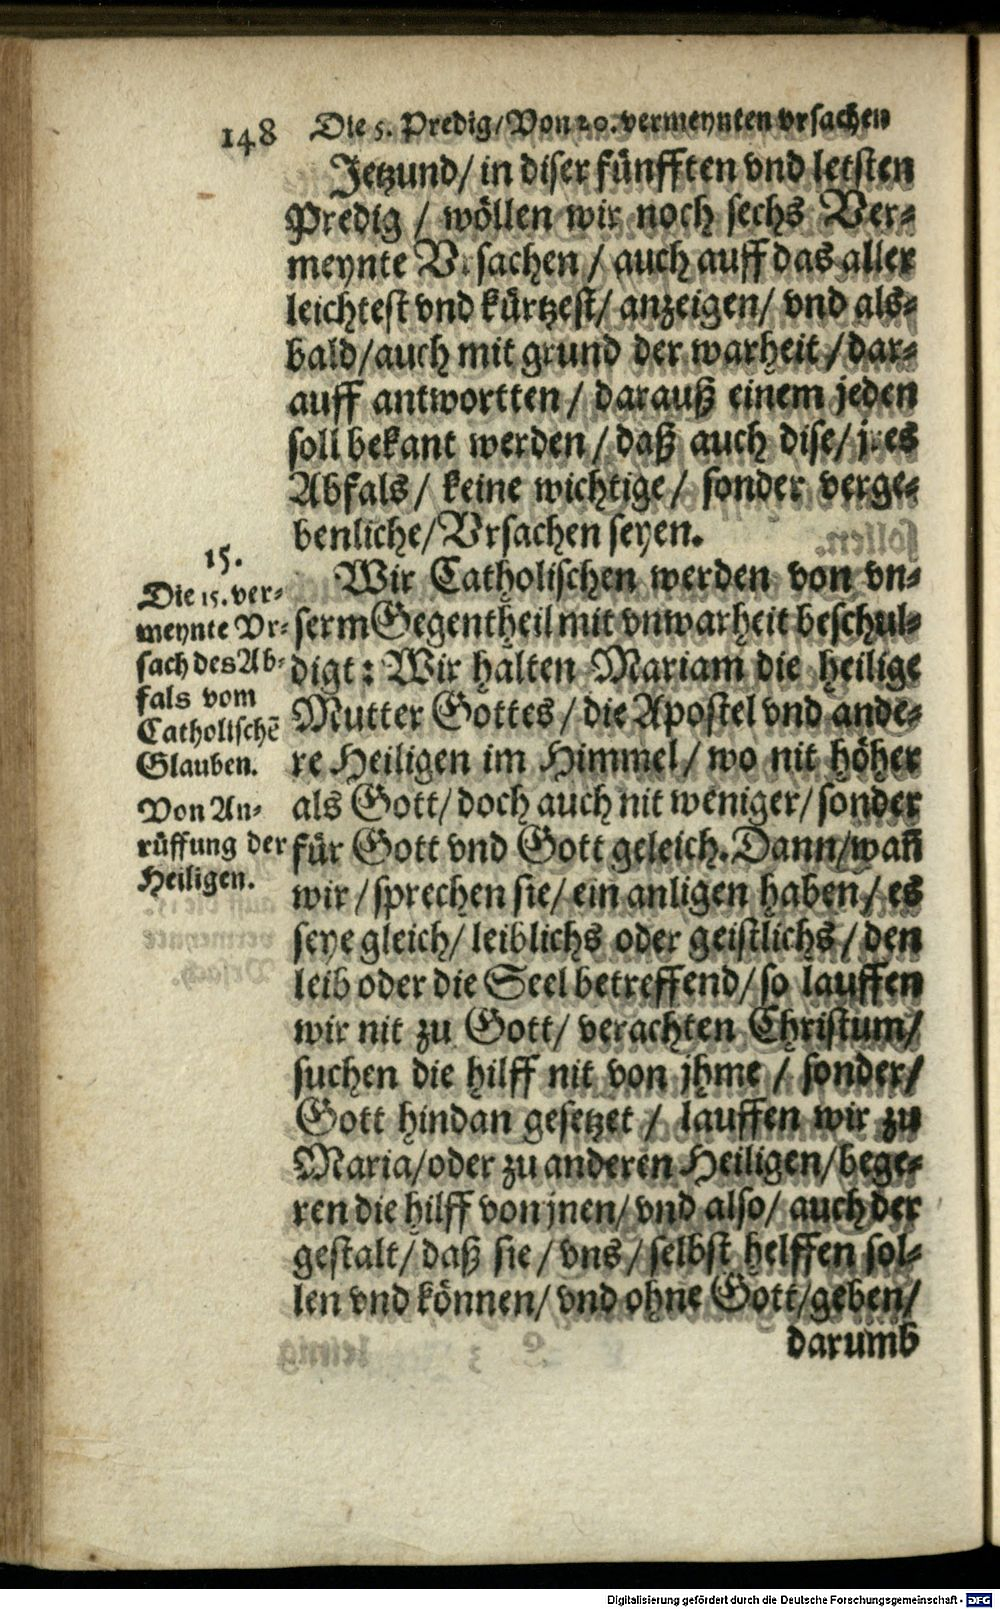 148 Die 5. Predig/Von 20. vermeynten vrsachen
Jetzund/ in diser fünfften vnd letsten
Predig / wöllen wir noch sechs Ver-
meynte Vrsachen / auch auff das aller
leichtest vnd kürtzest/ anzeigen/ vnd als-
bald/auch mit grund der warheit / dar-
auff antwortten / darauß einem jeden
soll bekant werden / daß auch dise/ jres
Abfals / keine wichtige / sonder verge-
benliche/ Vrsachen seyen.
15.
Die 15. ver-
meynte Vr-
sach des Ab-
fals vom
Catholischẽ
Glauben.
Von An-
rüffung der
Heiligen.
Wir Catholischen werden von vn-
serm Gegentheil mit vnwarheit beschul-
digt: Wir halten Mariam die heilige
Mutter Gottes / die Apostel vnd ande-
re Heiligen im Himmel/ wo nit höher
als Gott/ doch auch nit weniger/ sonder
für Gott vnd Gott geleich. Dann/wañ
wir / sprechen sie/ ein anligen haben / es
seye gleich/ leiblichs oder geistlichs / den
leib oder die Seel betreffend/ so lauffen
wir nit zu Gott/ verachten Christum/
suchen die hilff nit von jhme / sonder/
Gott hindan gesetzet / lauffen wir zu
Maria/oder zu anderen Heiligen/bege-
ren die hilff von jnen/ vnd also/ auch der
gestalt/ daß sie / vns / selbst helffen sol-
len vnd können/ vnd ohne Gott/geben/
darumb
Digitalisierung gefördert durch die Deutsche Forschungsgemeinschaft - DFG